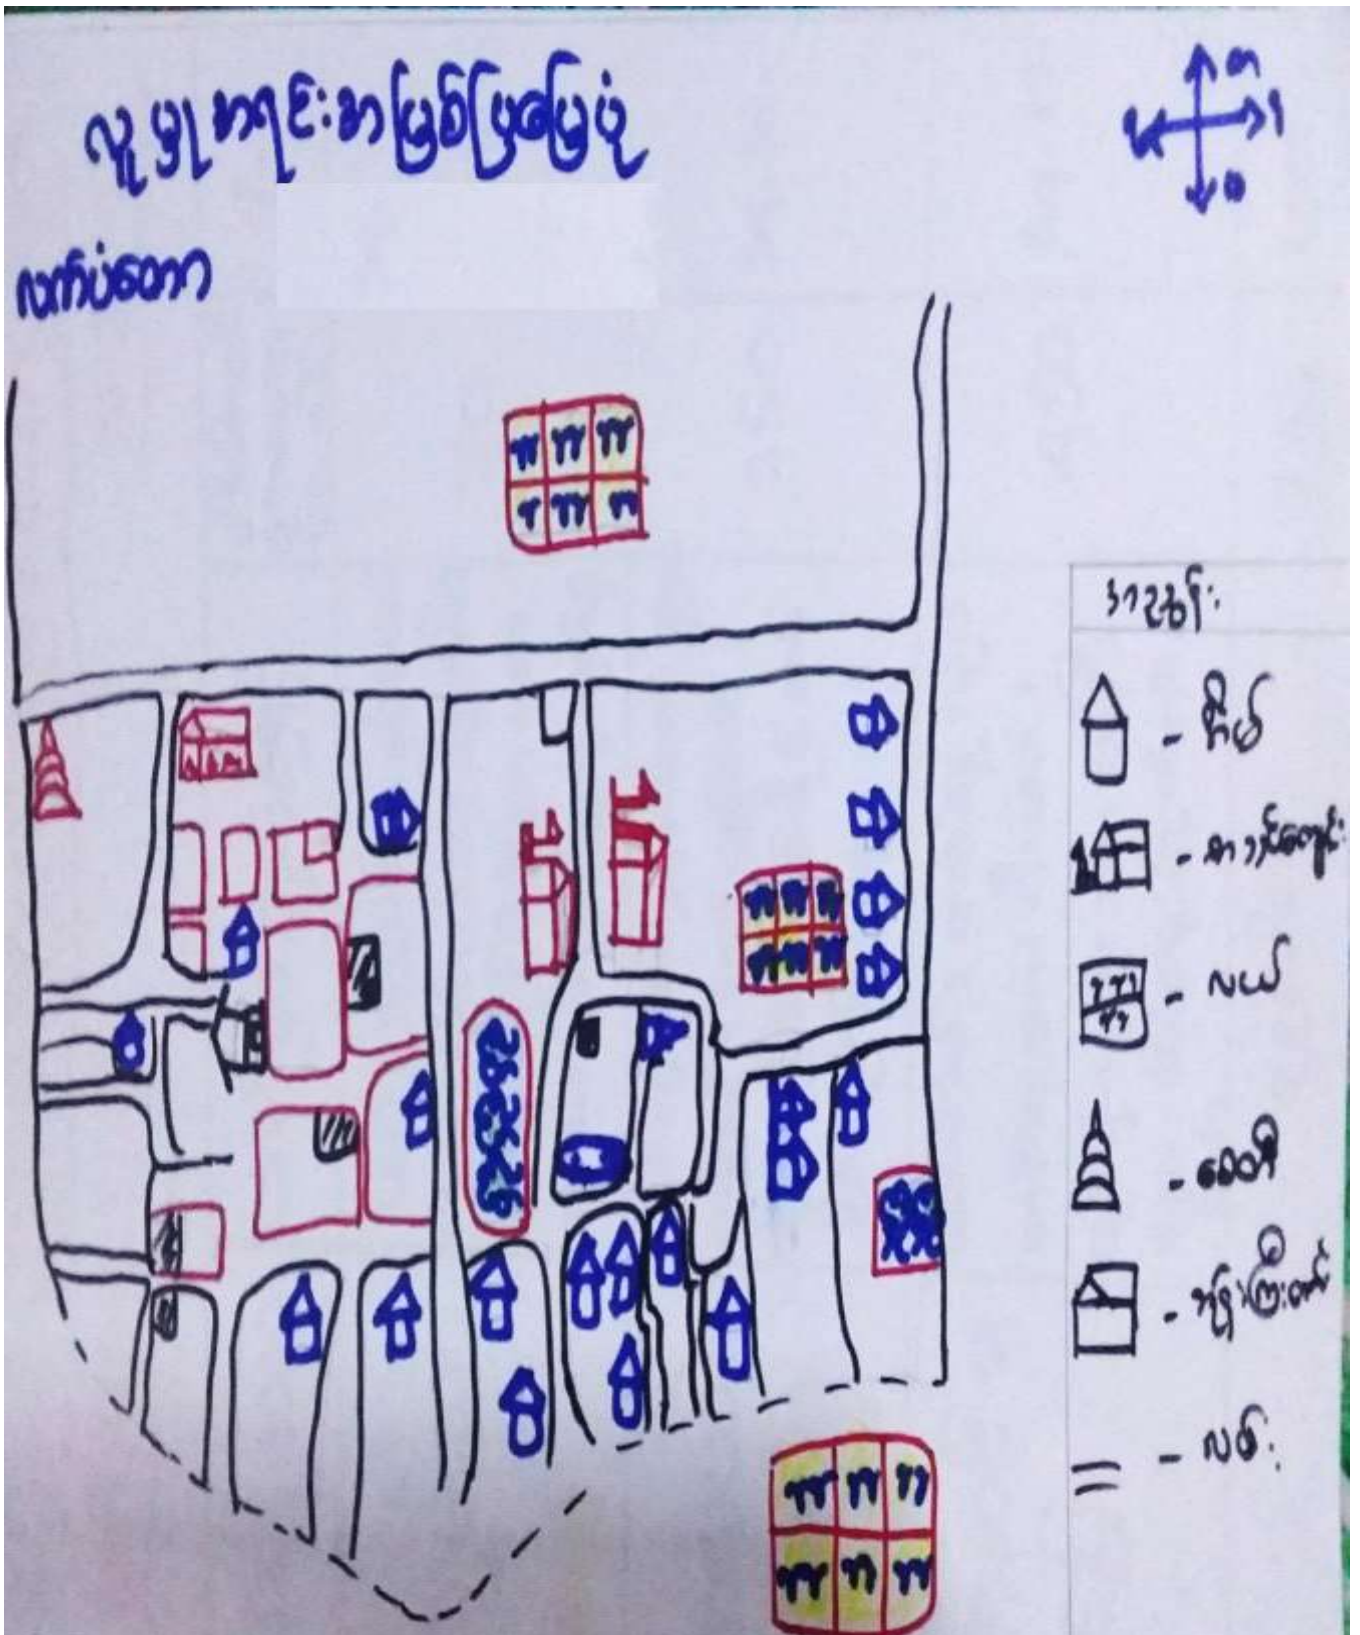 လူမှုအရင်းအမြစ်ပြမြေပုံ
လက်ပံတော
အညွှန်း
အိမ်
စာသင်ကျောင်း
လယ်
စေတီ
ဘုန်းကြီးကျောင်း
လမ်း